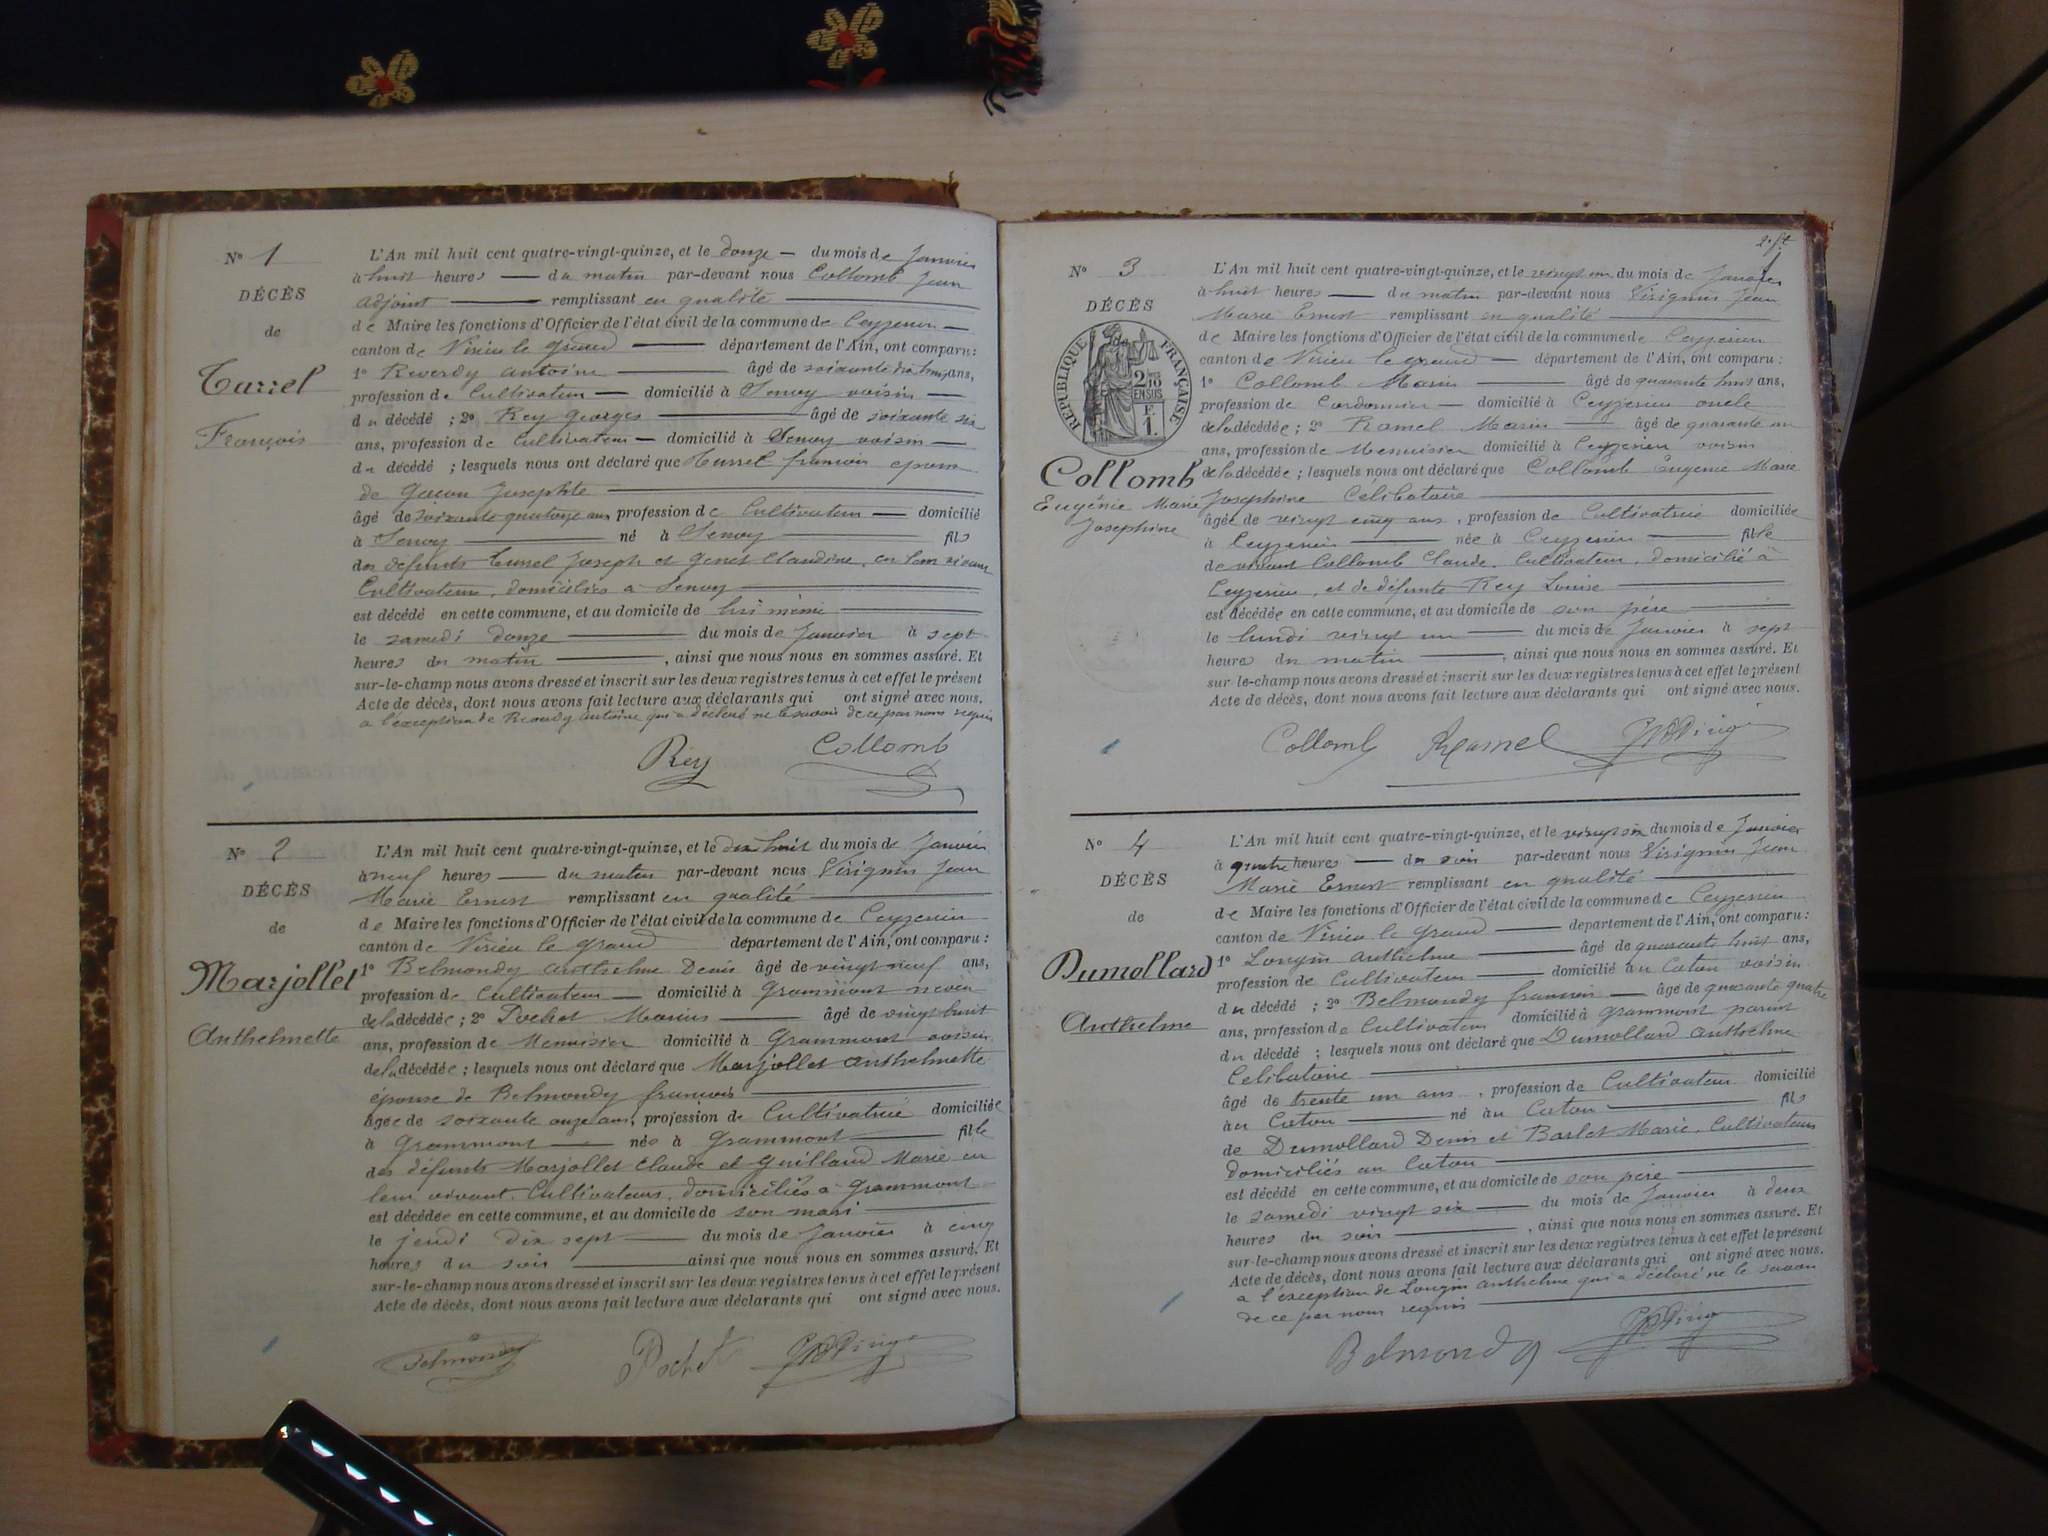 N° 1
DÉCÈS
de
Turrel
François
L'An mil huit cent quatre-vingt-quinze, et le douze — du mois de Janvier
à huit heures — du matin par-devant nous Collomb Jean
adjoint — remplissant en qualité —
de Maire les fonctions d'Officier de l'état civil de la commune de Ceyzerieu —
canton de Virieu le Grand — département de l'Ain, ont comparu :
1° Reverdy Antoine — âgé de soixante dix huit ans,
profession de Cultivateur — domicilié à Senoy voisin —
du décédé ; 2° Rey Georges — âgé de soixante six
ans, profession de Cultivateur — domicilié à Senoy voisin —
du décédé ; lesquels nous ont déclaré que Turrel françois époux
de Josephte —
âgé de soixante quatorze ans profession de Cultivateur — domicilié
à Senoy — né à Senoy — fils
des défunts Turrel Joseph et Genet Claudine, en leur vivant
Cultivateurs, domiciliés à Senoy —
est décédé en cette commune, et au domicile de lui même —
le samedi douze — du mois de Janvier à sept
heures du matin — , ainsi que nous nous en sommes assuré. Et
sur-le-champ nous avons dressé et inscrit sur les deux registres tenus à cet effet le présent
Acte de décès, dont nous avons fait lecture aux déclarants qui ont signé avec nous.
a l'exception de Reverdy Antoine qui a déclaré ne le savoir de ce par nous requis
Rey Collomb
N° 2
DÉCÈS
de
Marjollet
Anthelmette
L'An mil huit cent quatre-vingt-quinze, et le dix huit du mois de Janvier
à neuf heures — du matin par-devant nous Virignin Jean
Marie Ernest remplissant en qualité —
de Maire les fonctions d'Officier de l'état civil de la commune de Ceyzerieu
canton de Virieu le Grand département de l'Ain, ont comparu :
1° Belmondy Anthelme Denis âgé de vingt neuf ans,
profession de Cultivateur — domicilié à Grammont neveu
de la décédée ; 2° Pochet Marius — âgé de vingt huit
ans, profession de Menuisier domicilié à Grammont voisin
de la décédée ; lesquels nous ont déclaré que Marjollet Anthelmette
épouse de Belmondy françois —
âgée de soixante onze ans, profession de Cultivatrice domiciliée
à Grammont — née à Grammont — fille
des défunts Marjollet Claude et Guilland Marie en
leur vivant Cultivateurs, domiciliés à Grammont
est décédée en cette commune, et au domicile de son mari —
le jeudi dix sept — du mois de Janvier à cinq
heures du soir — ainsi que nous nous en sommes assuré. Et
sur-le-champ nous avons dressé et inscrit sur les deux registres tenus à cet effet le présent
Acte de décès, dont nous avons fait lecture aux déclarants qui ont signé avec nous.
Belmondy Pochet
N° 3
DÉCÈS
RÉPUBLIQUE FRANÇAISE
2/10 EN SUS
F. 1.
Collomb
Eugénie Marie
Josephine
L'An mil huit cent quatre-vingt-quinze, et le vingt un du mois de Janvier
à huit heures — du matin par-devant nous Virignin Jean
Marie Ernest remplissant en qualité —
de Maire les fonctions d'Officier de l'état civil de la commune de Ceyzerieu
canton de Virieu le grand — département de l'Ain, ont comparu :
1° Collomb Marin — âgé de quarante huit ans,
profession de Cordonnier — domicilié à Ceyzerieu oncle
de la décédée ; 2° Ramel Marin — âgé de quarante un
ans, profession de Menuisier domicilié à Ceyzerieu voisin
de la décédée ; lesquels nous ont déclaré que Collomb Eugénie Marie
Josephine Célibataire —
âgée de vingt cinq ans , profession de Cultivatrice domiciliée
à Ceyzerieu — née à Ceyzerieu — fille
de vivant Collomb Claude, Cultivateur, domicilié à
Ceyzerieu, et de défunte Rey Louise —
est décédée en cette commune, et au domicile de son père —
le lundi vingt un — du mois de Janvier à sept
heures du matin — , ainsi que nous nous en sommes assuré. Et
sur-le-champ nous avons dressé et inscrit sur les deux registres tenus à cet effet le présent
Acte de décès, dont nous avons fait lecture aux déclarants qui ont signé avec nous.
Collomb Ramel
N° 4
DÉCÈS
de
Dumollard
Anthelme
L'An mil huit cent quatre-vingt-quinze, et le vingt six du mois de Janvier
à quatre heures — du soir par-devant nous Virignin Jean
Marie Ernest remplissant en qualité —
de Maire les fonctions d'Officier de l'état civil de la commune de Ceyzerieu
canton de Virieu le Grand — département de l'Ain, ont comparu :
1° Longin Anthelme — âgé de quarante huit ans,
profession de Cultivateur — domicilié au Caton voisin
du décédé ; 2° Belmondy françois — âgé de quarante quatre
ans, profession de Cultivateur domicilié à Grammont parent
du décédé ; lesquels nous ont déclaré que Dumollard Anthelme
Célibataire —
âgé de trente un ans , profession de Cultivateur domicilié
au Caton — né au Caton — fils
de Dumollard Denis et Barlet Marie, Cultivateurs
domiciliés au Caton —
est décédé en cette commune, et au domicile de son père —
le samedi vingt six — du mois de Janvier à deux
heures du soir — , ainsi que nous nous en sommes assuré. Et
sur-le-champ nous avons dressé et inscrit sur les deux registres tenus à cet effet le présent
Acte de décès, dont nous avons fait lecture aux déclarants qui ont signé avec nous.
a l'exception de Longin Anthelme qui a déclaré ne le savoir
de ce par nous requis —
Belmondy